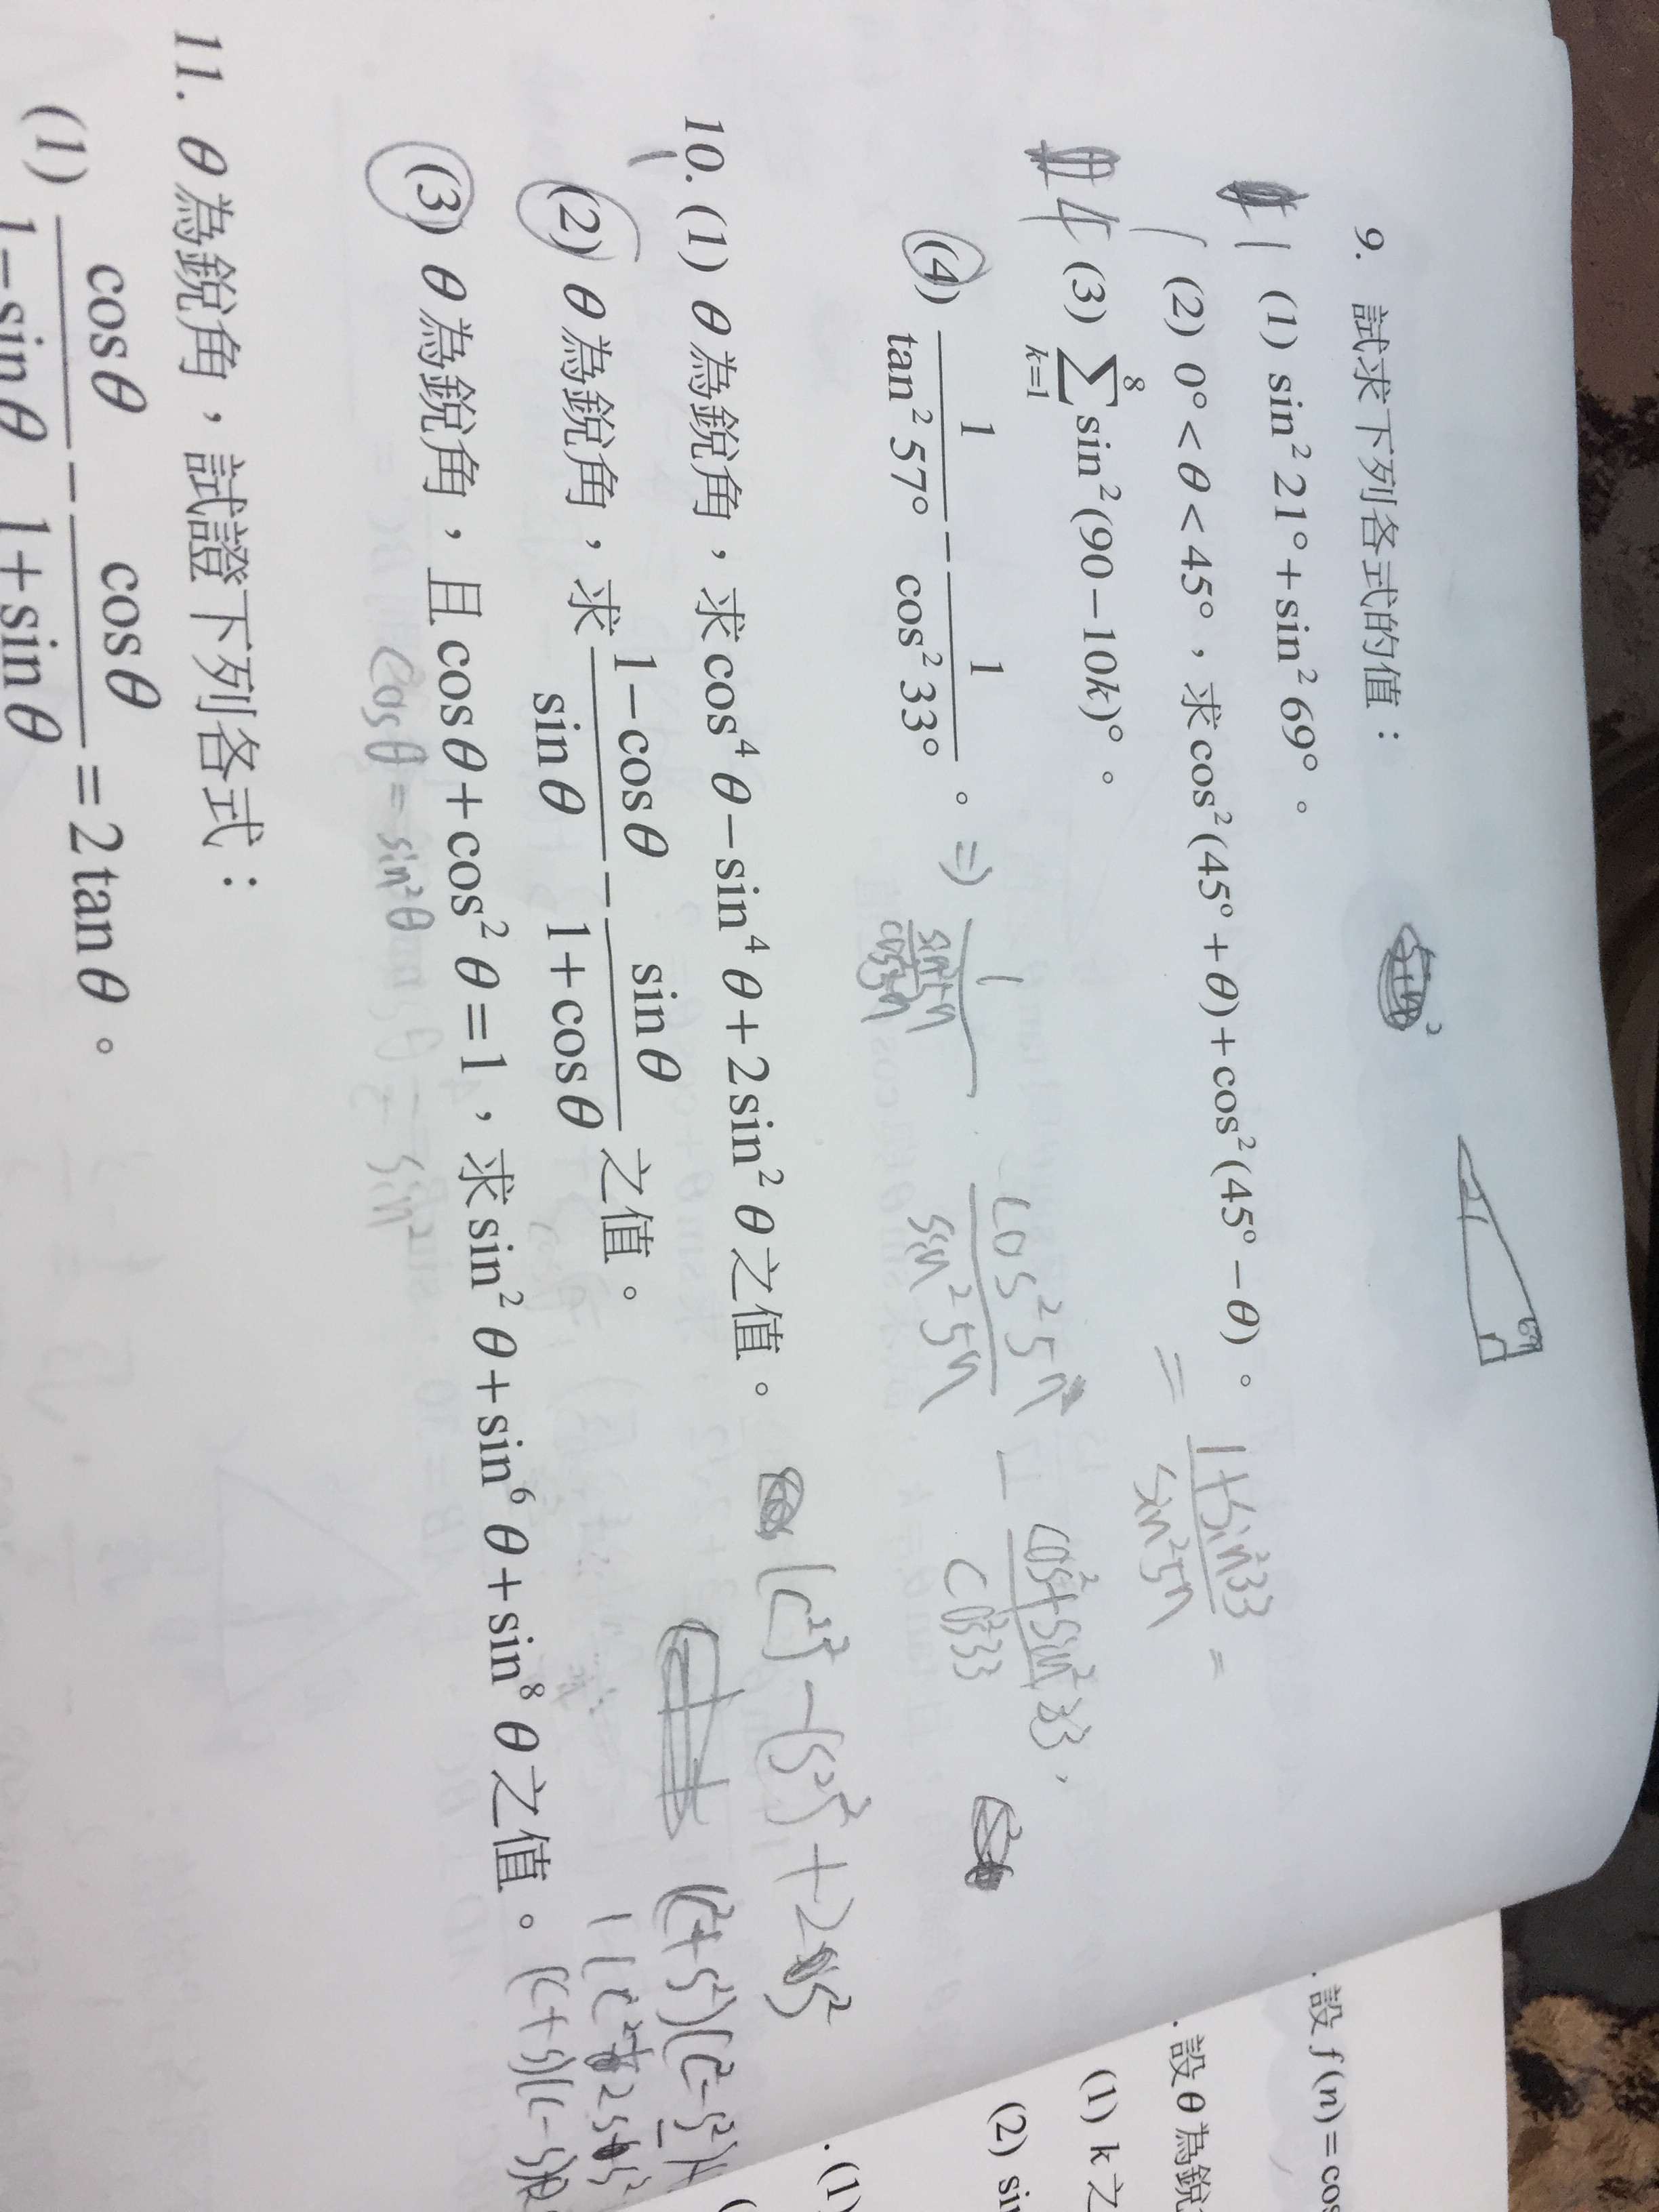 9. 試求下列各式的值：
1 (1) sin²21°+sin²69°。
1 (2) 0°<θ<45°，求cos²(45°+θ)+cos²(45°−θ)。
4 (3) ∑_{k=1}^{8} sin²(90−10k)°。
= (1+sin²33)/(sin²57) =
(4) 1/tan²57° − 1/cos²33°。 ⇒ cos²57/sin²57 −
10. (1) θ為銳角，求cos⁴θ−sin⁴θ+2sin²θ之值。
1
(c²)²−(s²)²+2s²
(2) θ為銳角，求 (1−cosθ)/sinθ − sinθ/(1+cosθ) 之值。
(c²+s²)(c²−s²)
(3) θ為銳角，且cosθ+cos²θ=1，求sin²θ+sin⁶θ+sin⁸θ之值。
cosθ=sin²θ
11. θ為銳角，試證下列各式：
(1) cosθ/(1−sinθ) − cosθ/(1+sinθ) = 2tanθ。
設 f(n)=cos
設θ為銳
(1) k之
(2) sin
(1)